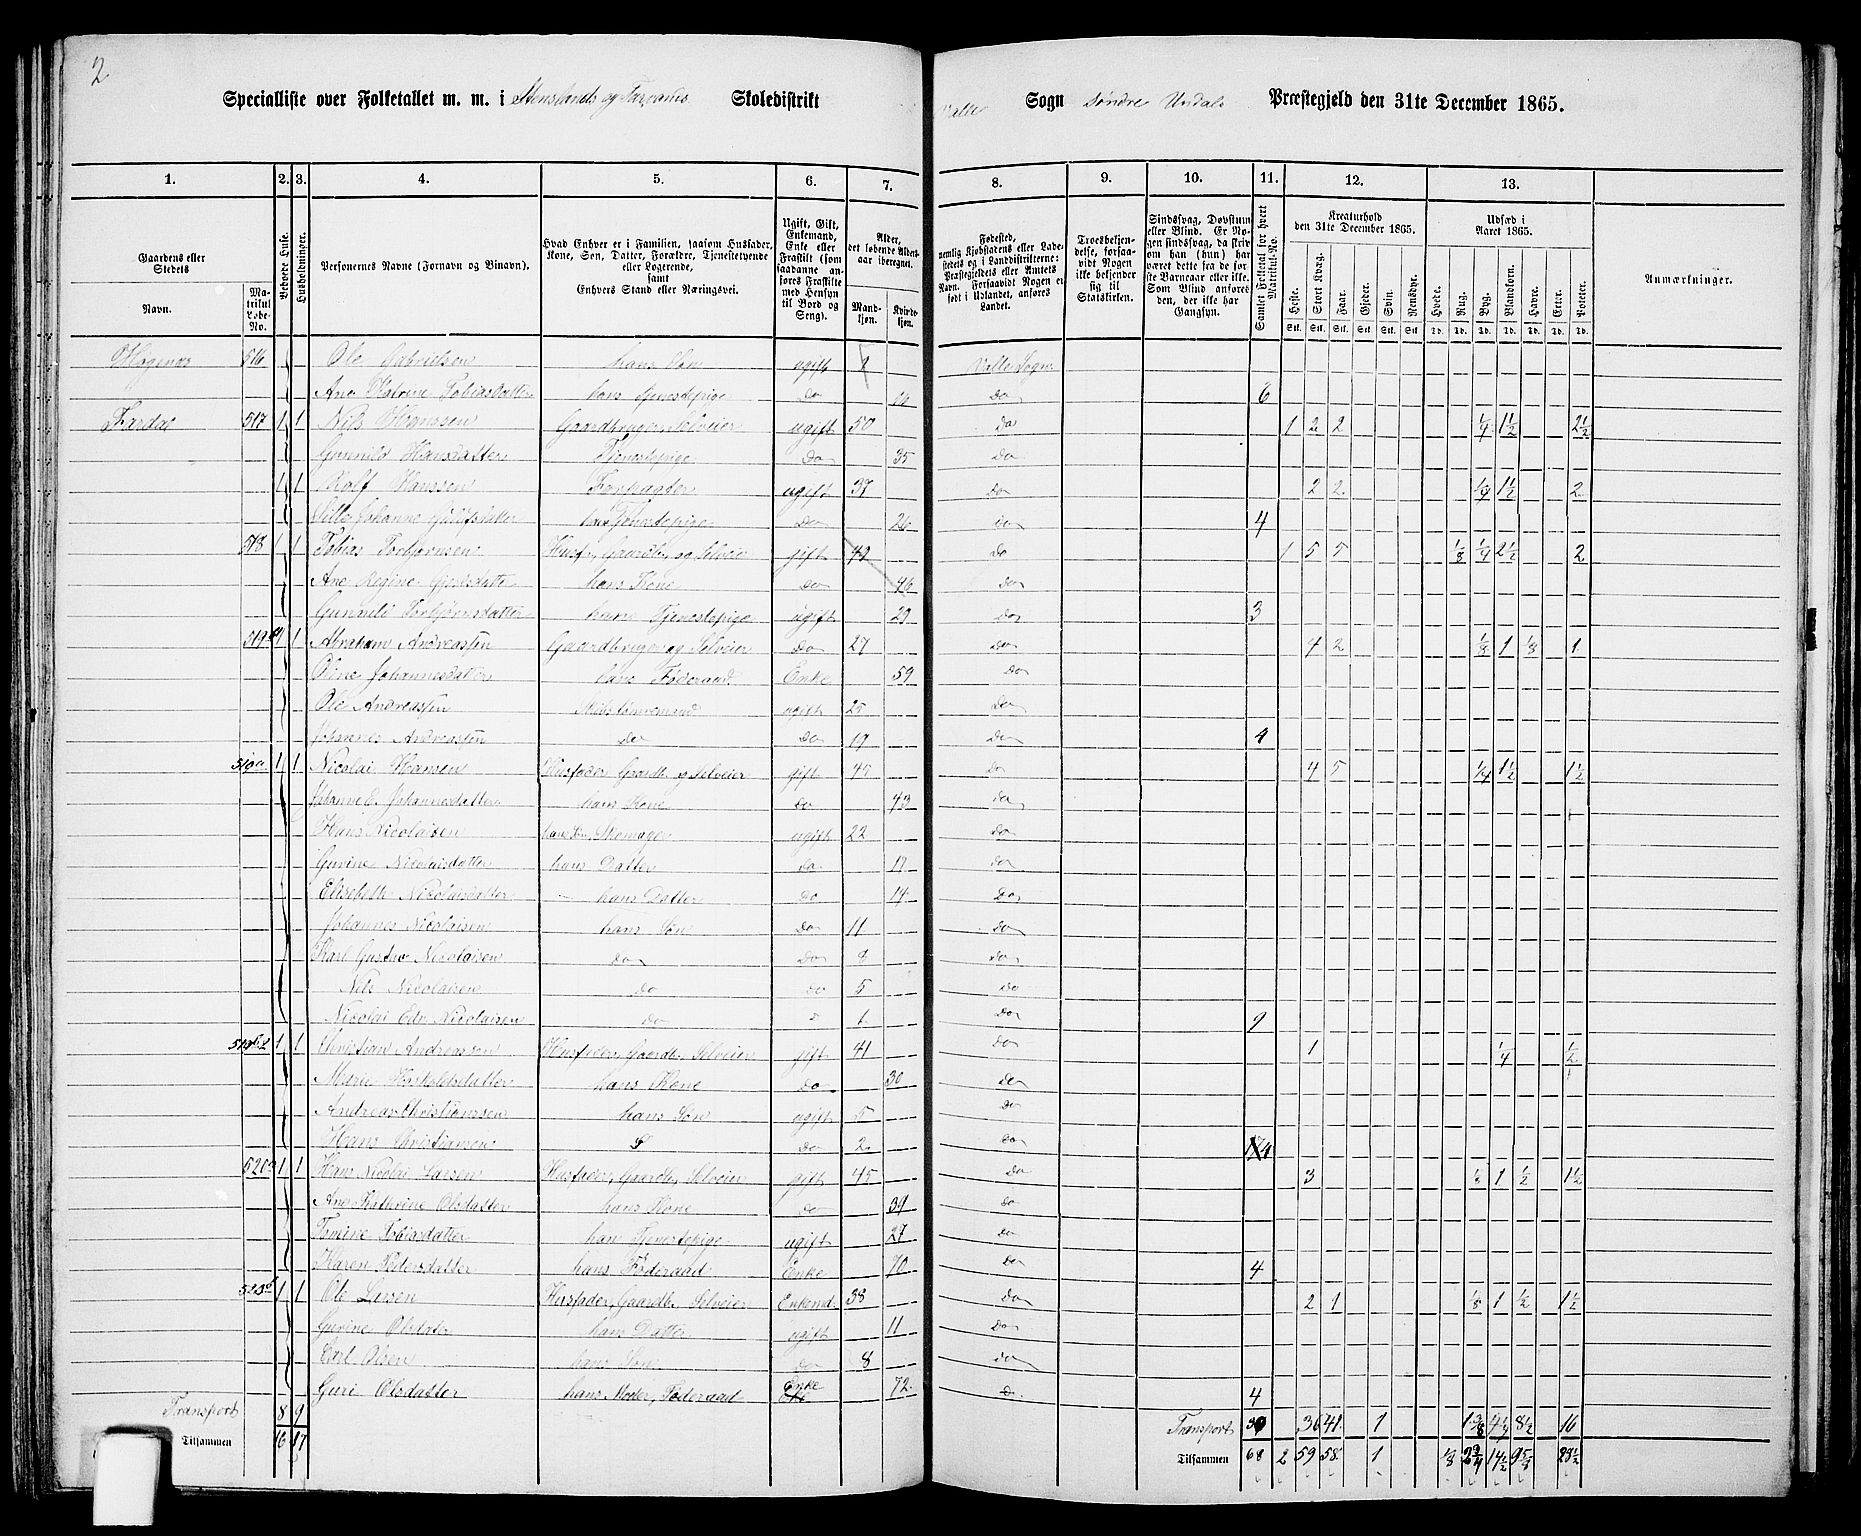 2
Specialliste over Folketallet m. m. i Stenslands og Farvands Skoledistrikt Valle Sogn Søndre Undals Præstegjeld den 31te December 1865.
1. 2. 3. 4. 5. 6. 7. 8. 9. 10. 11. 12. 13.
Gaardens eller Stedets
Navn.
Matrikul Løbe-No.
Beboede Huse.
Husholdninger.
Personernes Navne (Fornavn og Binavn).
Hvad Enhver er i Familien, saasom Husfader, Kone, Søn, Datter, Forældre, Tjenestetyende eller Logerende, samt Enhvers Stand eller Næringsvei.
Ugift, Gift, Enkemand, Enke eller Fraskilt (som saadanne anføres Fraskilte med Hensyn til Bord og Seng).
Alder, det løbende Alders-aar iberegnet.
Mandkjøn.
Kvindekjøn.
Fødested, nemlig Kjøbstadens eller Ladestedets og i Landdistrikterne: Præstegjeldets eller Amtets Navn. Forsaavidt Nogen er født i Udlandet, anføres Landet.
Troesbekjendelse, forsaavidt Nogen ikke bekjender sig til Statskirken.
Sindssvag, Døvstum eller Blind. Er Nogen sindssvag, da skrives om han (hun) har været dette fra de første Barneaar eller ikke. Som Blind anføres den, der ikke har Gangsyn.
Samlet Folketal for hvert Matrikul-No.
Kreaturhold den 31te December 1865.
Heste. Stort Kvæg. Faar. Gjeder. Svin. Rensdyr.
Udsæd i Aaret 1865.
Hvede. Rug. Byg. Blandkorn. Havre. Erter. Poteter.
Anmærkninger.
516 Ole Gabrielsen hans Søn ugift 1 Valle Sogn
Ane Katrine Tobiasdatter hans Tjenestepige Do Do 6
Fardal 517 1 1 Nils Hanssen Gaardbruger, Selveier ugift 50 do 1 2 2 1/4 1 1/2 2 1/2
Gunnild Hansdatter Tjenestepige Do 35 Do
1 1 Hanssen Forpagter ugift 37 Do 2 2 1/4 1 1/2 2
Johanne hans Tjenestepige Do 26 do 4
518 1 1 Tobias Torbjørnsen Husf., Gaardb. og Selveier gift Do 1 5 5 1/8 1/4 2 1/2 2
Ane Regine hans Kone Do 46 Do
Gunnild Torbjørnsdatter hans Tjenestepige ugift 29 Do 3
519 1 1 Abraham Andreassen Gaardbruger og Selveier Do 27 Do 4 2 1/8 1 1/8 1
Oline Johannesdatter hans Føderaad Enke 59 Do
Ole Andreassen Skibstømremand ugift 25 Do
Johannes Andreassen do Do 19 Do 4
519a 1 1 Nicolai Hansen Husfader Gaardb. og Selveier gift 45 Do 4 5 1/4 1 1/2 1 1/2
Johanne E. Johannesdatter hans Kone Do 43 Do
Hans Nicolaisen hans Søn, Skomager ugift 22 Do
Gurine Nicolaisdatter hans Datter do Do
Elisebeth Nicolaisdatter hans Datter Do 14 Do
Johannes Nicolaisen hans Søn Do 11 Do
Karl Gustav Nicolaisen do Do 8 Do
Nils Nicolaisen do Do 5 Do
Nicolai Edv. Nicolaisen do 1 Do 9
1 1 Christian Andreassen Husfader, Gaardb., Selveier gift 41 Do 1 1/4 1/2
Marie hans Kone Do 30 Do
Andreas Christianssen hans Søn ugift 5 Do
Hans Christiansen Do 2 Do 4
520 1 1 Hans Nicolai Larsen Husfader, Gaardb., Selveier gift 45 Do 3 1/8 1 1/2 1 1/2
Ane Kathrine Olsdatter hans Kone Do 34 Do
Tomine Tobiasdatter hans Tjenestepige ugift 27 Do
Karen Pedersdatter hans Føderaad Enke 70 Do 4
1 1 Ole Larsen Husfader, Gaardb. Selveier Enkemd. 38 Do 2 1 1/8 1 1/2 1 1/2
Gurine Olsdatter hans Datter ugift 11 Do
Carl Olsen hans Søn Do 8 Do
Guri Olsdatter hans Moder, Føderaad Enke 72 Do 4
Transport 8 9 Transport 36 41 1 1 3/8 4 1/4 8 1/2 16
Tilsammen 16 17 Tilsammen 68 2 59 58 1 1/8 14 1/2 28 1/2